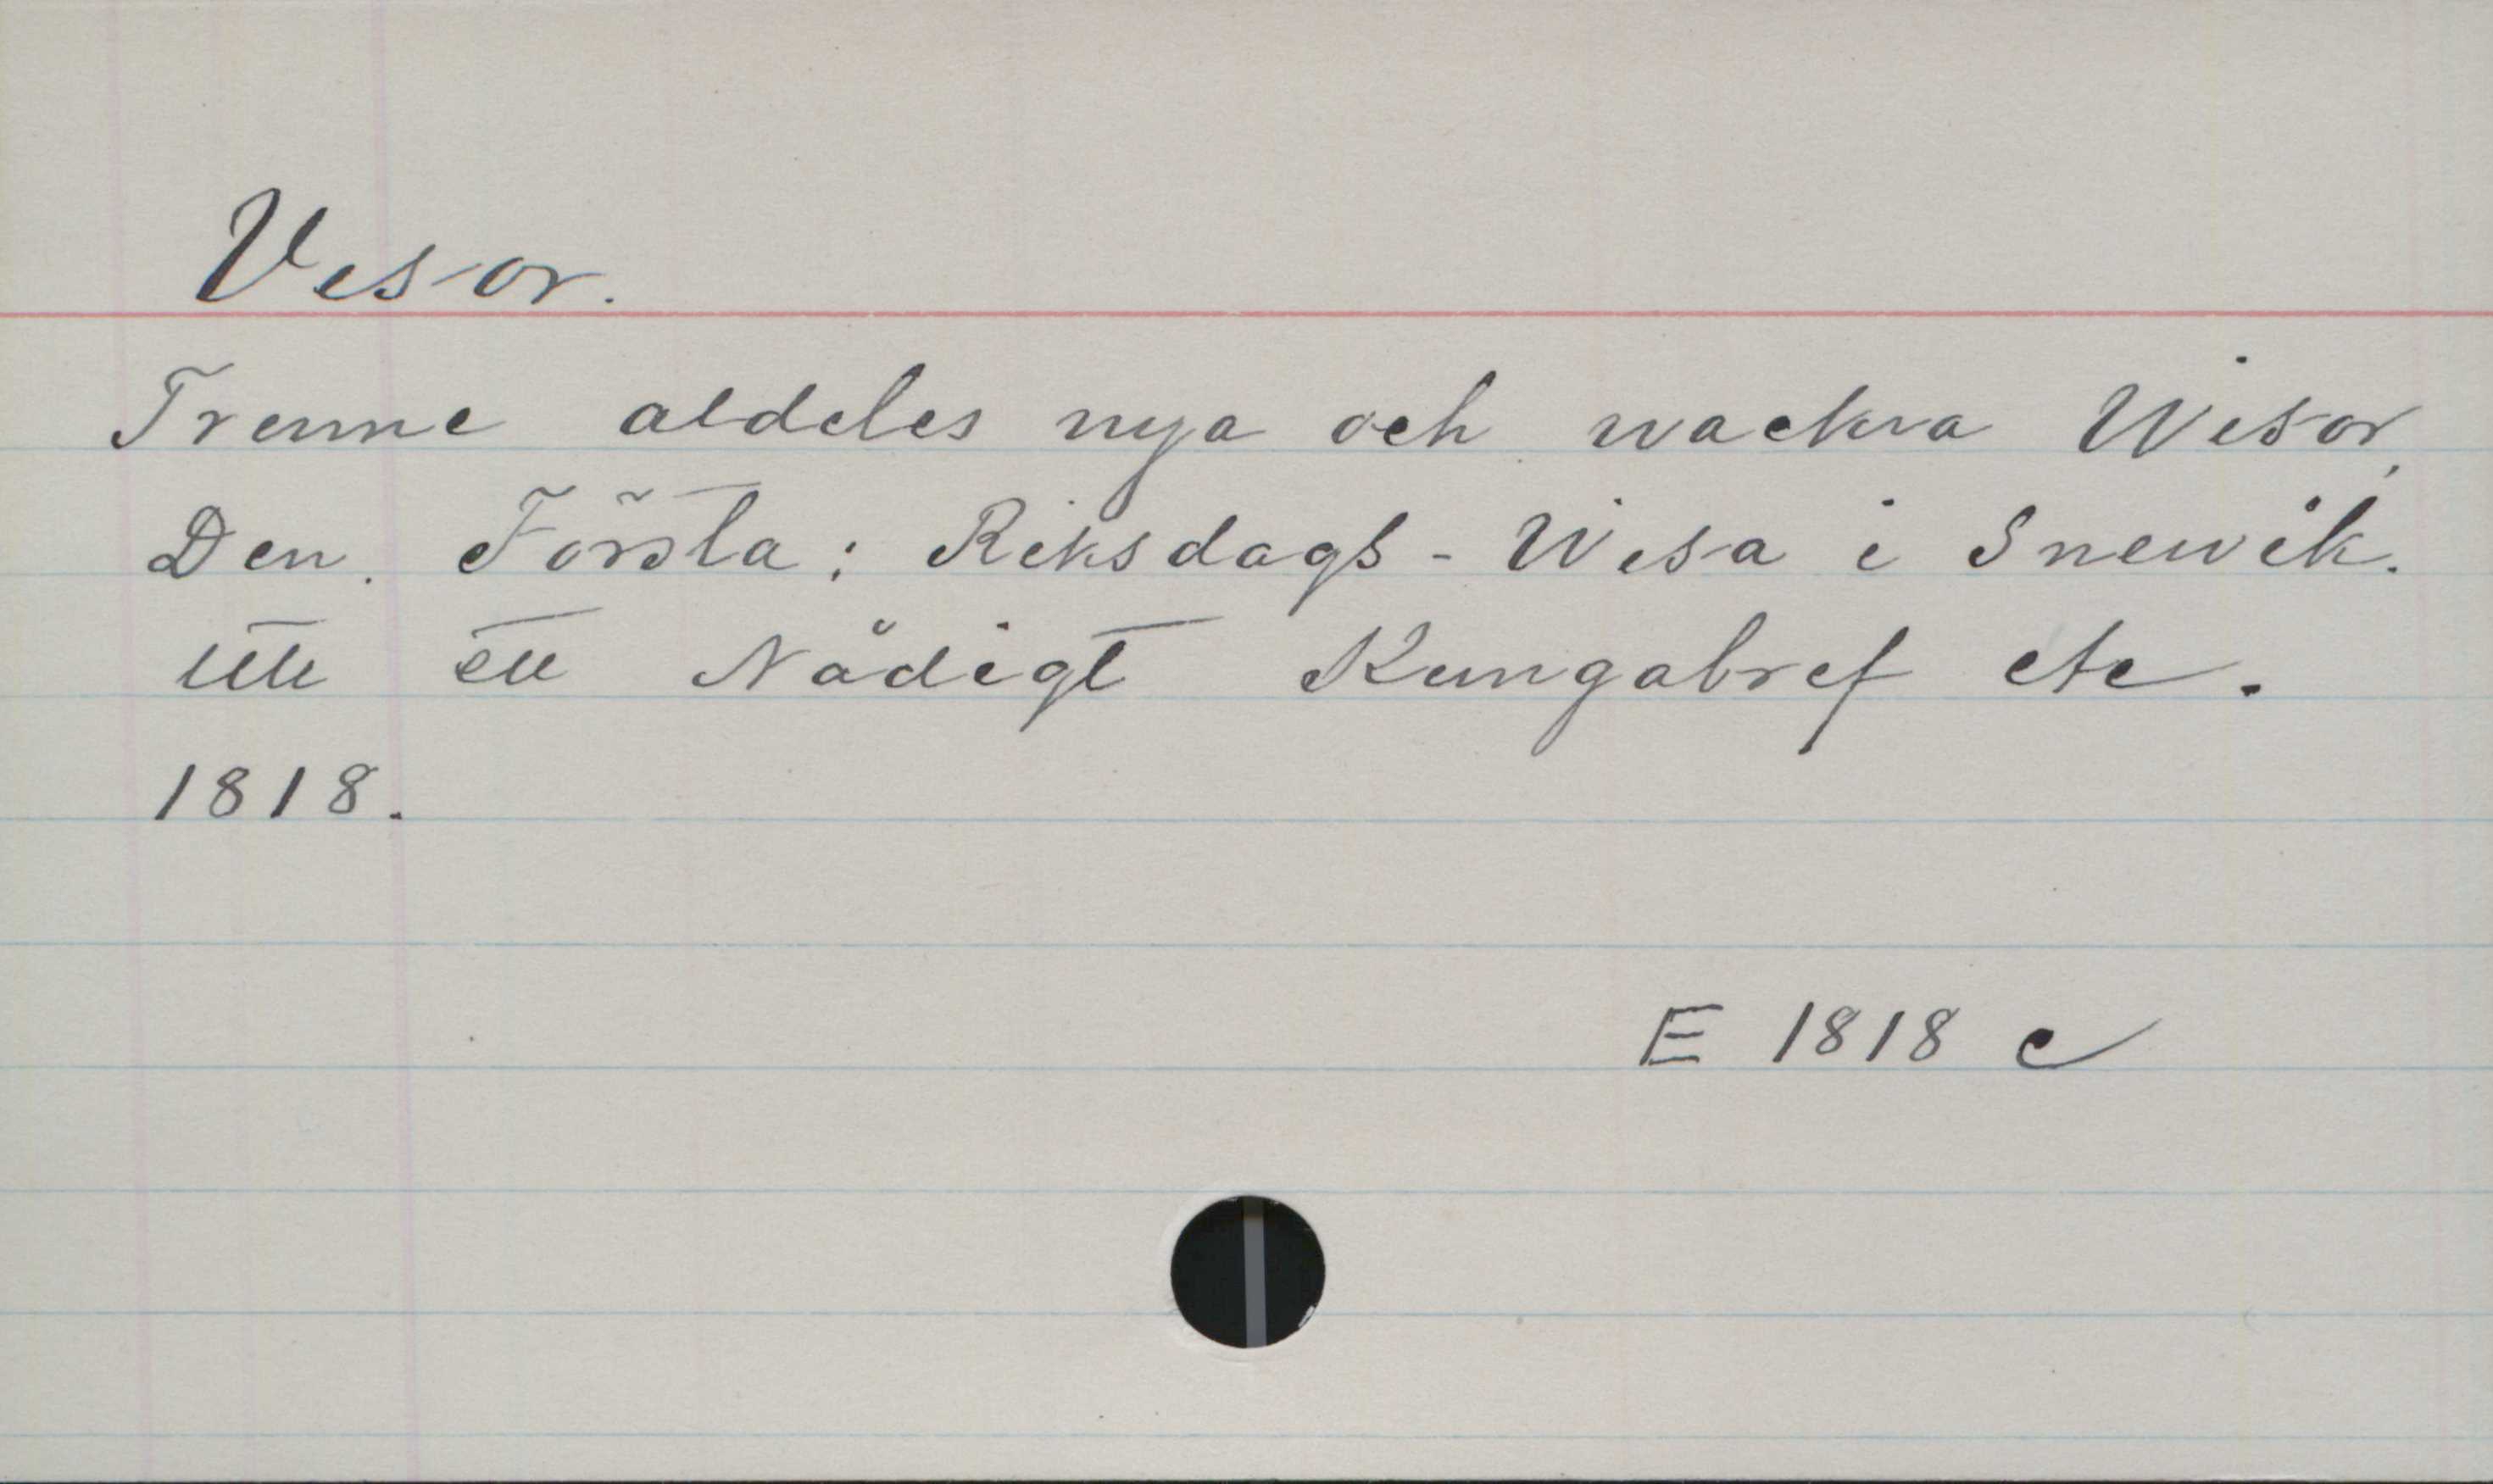 Visor.
Trenne aldeles nya och wackra Wisor,
Den Första: Riksdags-Wisa i Snewik.
Utu ett Nådigt Kungabref etc.
1818.
E 1818 c